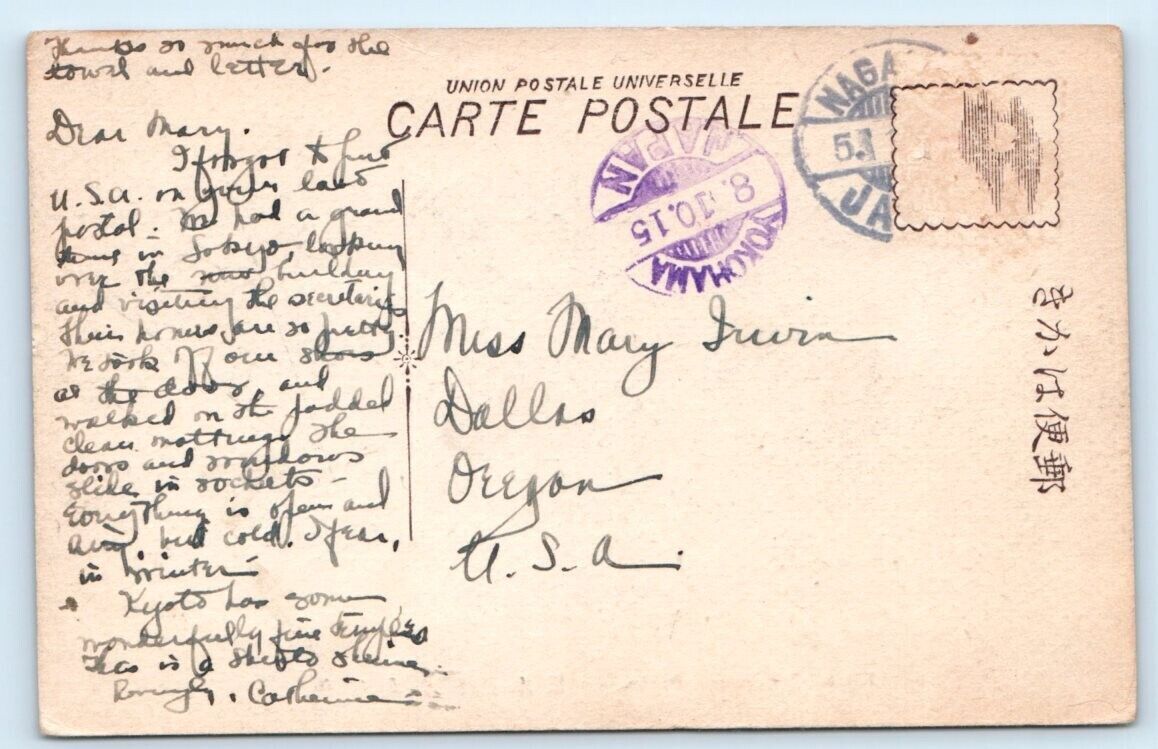 Thanks so much for the
towel and letter.
Dear Mary.
I forgot to put
U.S.A. on your last
postal. We had a grand
time in Tokyo, looking
over the new building
and visiting the secretaries
Their homes are so pretty.
We took off our shoes
at the door, and
walked on the padded
clean mattings. The
doors and windows
slide in sockets –
Everything is open and
airy, but cold. I fear,
in winter –
Kyoto has some
wonderfully fine temples
This is a Shinto shrine.
Lovingly, Catherine
UNION POSTALE UNIVERSELLE
CARTE POSTALE
YOKOHAMA
8.10.15
JAPAN
NAGA
JA
Miss Mary Irwin
Dallas
Oregon
U.S.A.
きかは便郵